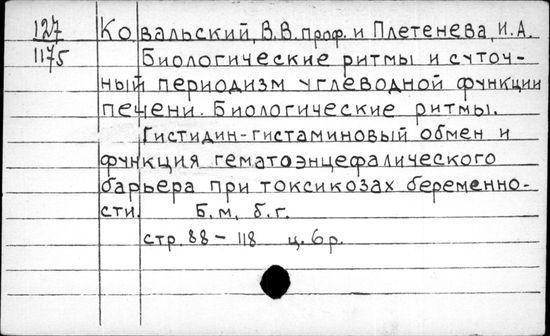 127 Ковальский, В.В. проф. и Плетенева, И.А.
1175 Биологические ритмы и суточ-
ный периодизм углеводной функции
печени. Биологические ритмы.
Гистидин-гистаминовый обмен и
функция гематоэнцефалического
барьера при токсикозах беременно-
сти. Б.м, б.г.
стр. 88 - 118 ц. 6р.